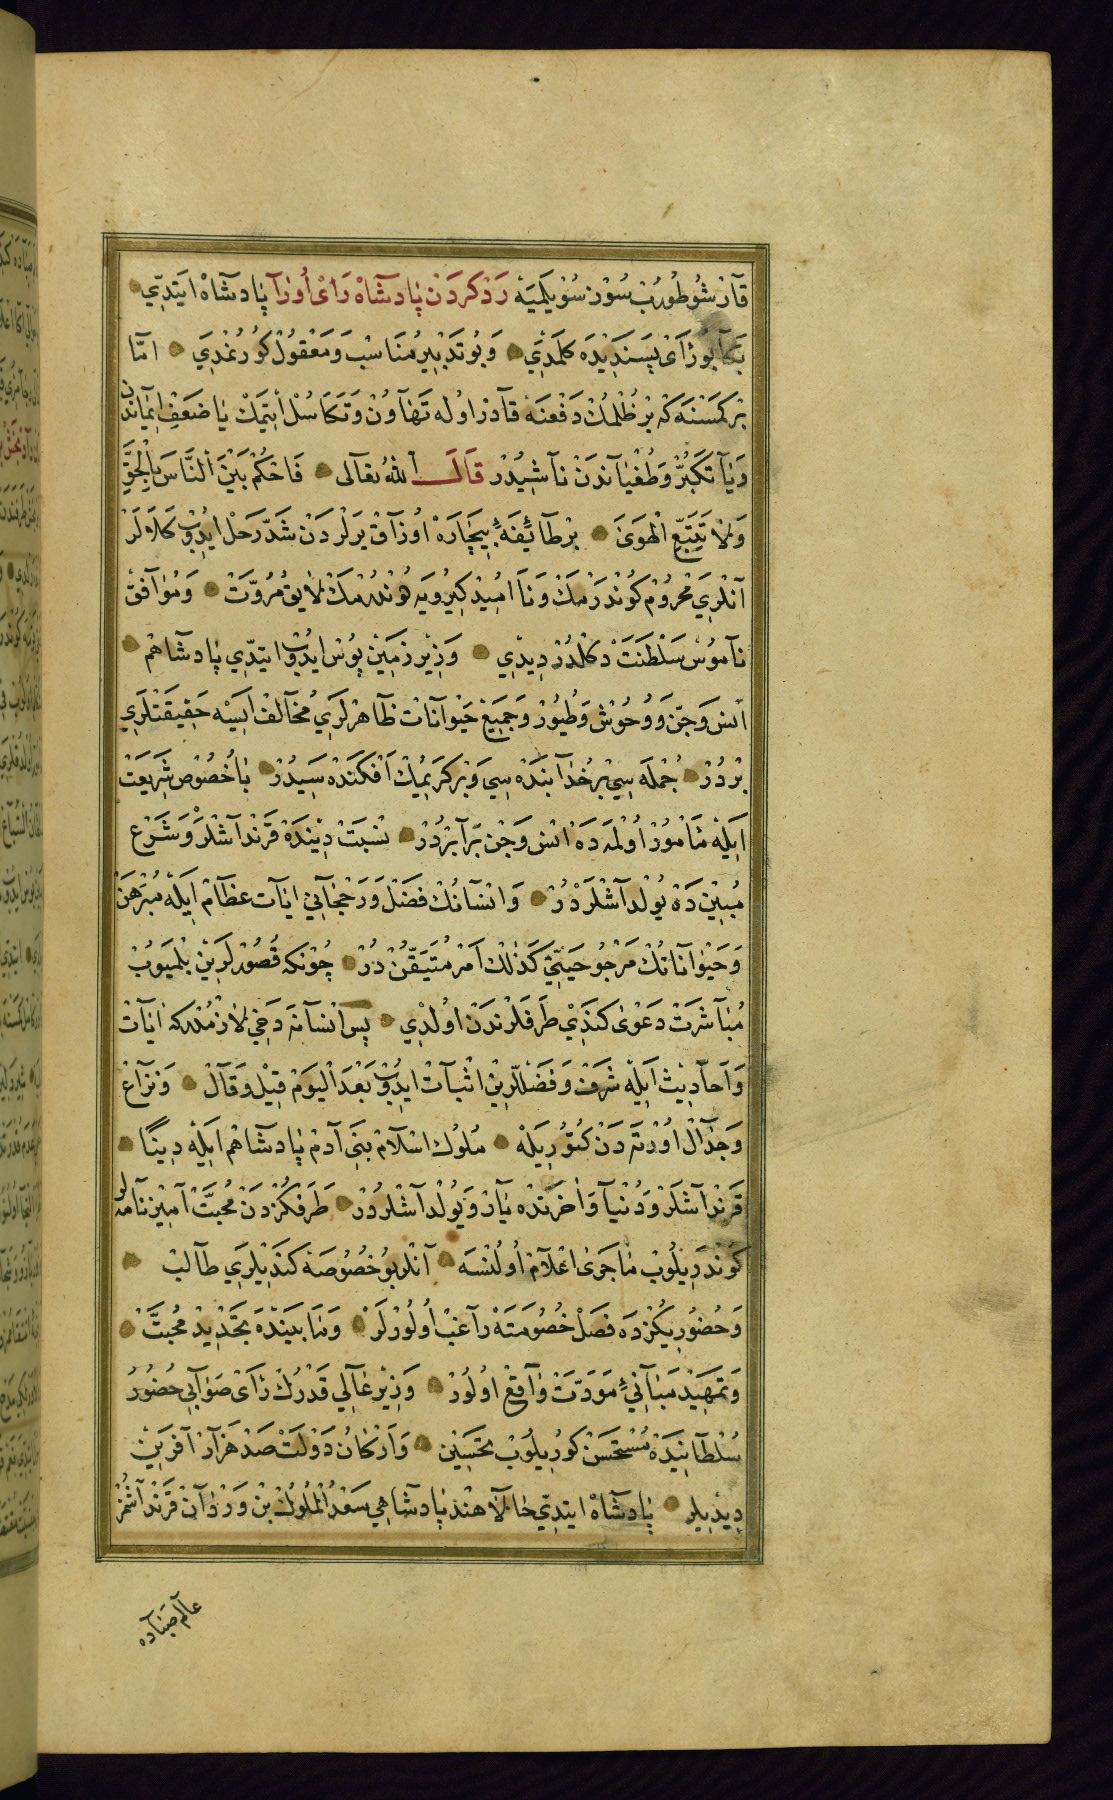 قارشو طوروب سوز سویلمیه رد کردن پادشاه رای اورا پادشاه ایتدی
بکا بو رای پسندیده کلمدی و بو تدبیر مناسب و معقول کورنمدی اما
بر کمسنه که بر ظلمک دفعنه قادر اوله تهاون و تکاسل ایتمک یا ضعف ایماندن
و یا تکبر و طغیاندن ناشیدر قال الله تعالی فاحکم بین الناس بالحق
ولا تتبع الهوی بر طائفهٔ بیچاره اوزاق یرلردن شد رحل ایدوب کلالر
آنلری محروم کوندرمک و نا امید کیرویه دوندرمک لایق مروت و موافق
ناموس سلطنت دکلدر دیدی وزیر زمین بوس ایدوب ایتدی پادشاهم
انس و جن و وحوش و طیور و جمیع حیوانات ظاهرلری مخالف ایسه حقیقتلری
بردر جمله سی بر خدا بنده سی و بر کریمک افکنده سیدر باخصوص شریعت
ایله مأمور اولمده انس و جن برابردر نسبت دینده قرنداشلر و شرع
مبینده یولداشلردر و انسانک فضل و رجحانی ایات عظام ایله مبرهن
و حیواناتک مرجوحیتی کذلک امر متیقندر چونکه قصورلرین بلمیوب
مباشرت دعوی کندی طرفلرندن اولدی پس انسانه دخی لازمدرکه ایات
و احادیث ایله شرف و فضللرین اثبات ایدوب بعد الیوم قیل و قال و نزاع
و جدال اورته دن کتوریله ملوک اسلام بنی آدم پادشاهم ایله دینا
قرنداشلر و دنیا و اخرتده یار و یولداشلردر طرفکزدن محبت آمیز نامه لر
کوندریلوب ماجری اعلام اولنسه آنلر بو خصوصه کندیلری طالب
و حضوریکزده فصل خصومته راغب اولورلر و مابینده تجدید محبت
و تمهید مبانیٔ مودت واقع اولور وزیر عالی قدرک رای صوابی حضور
سلطانیده مستحسن کوریلوب تحسین و ارکان دولت صد هزار آفرین
دیدیلر پادشاه ایتدی حالا هند پادشاهی سعد الملوک بن وردان قرنداشمز
عالم صبناده